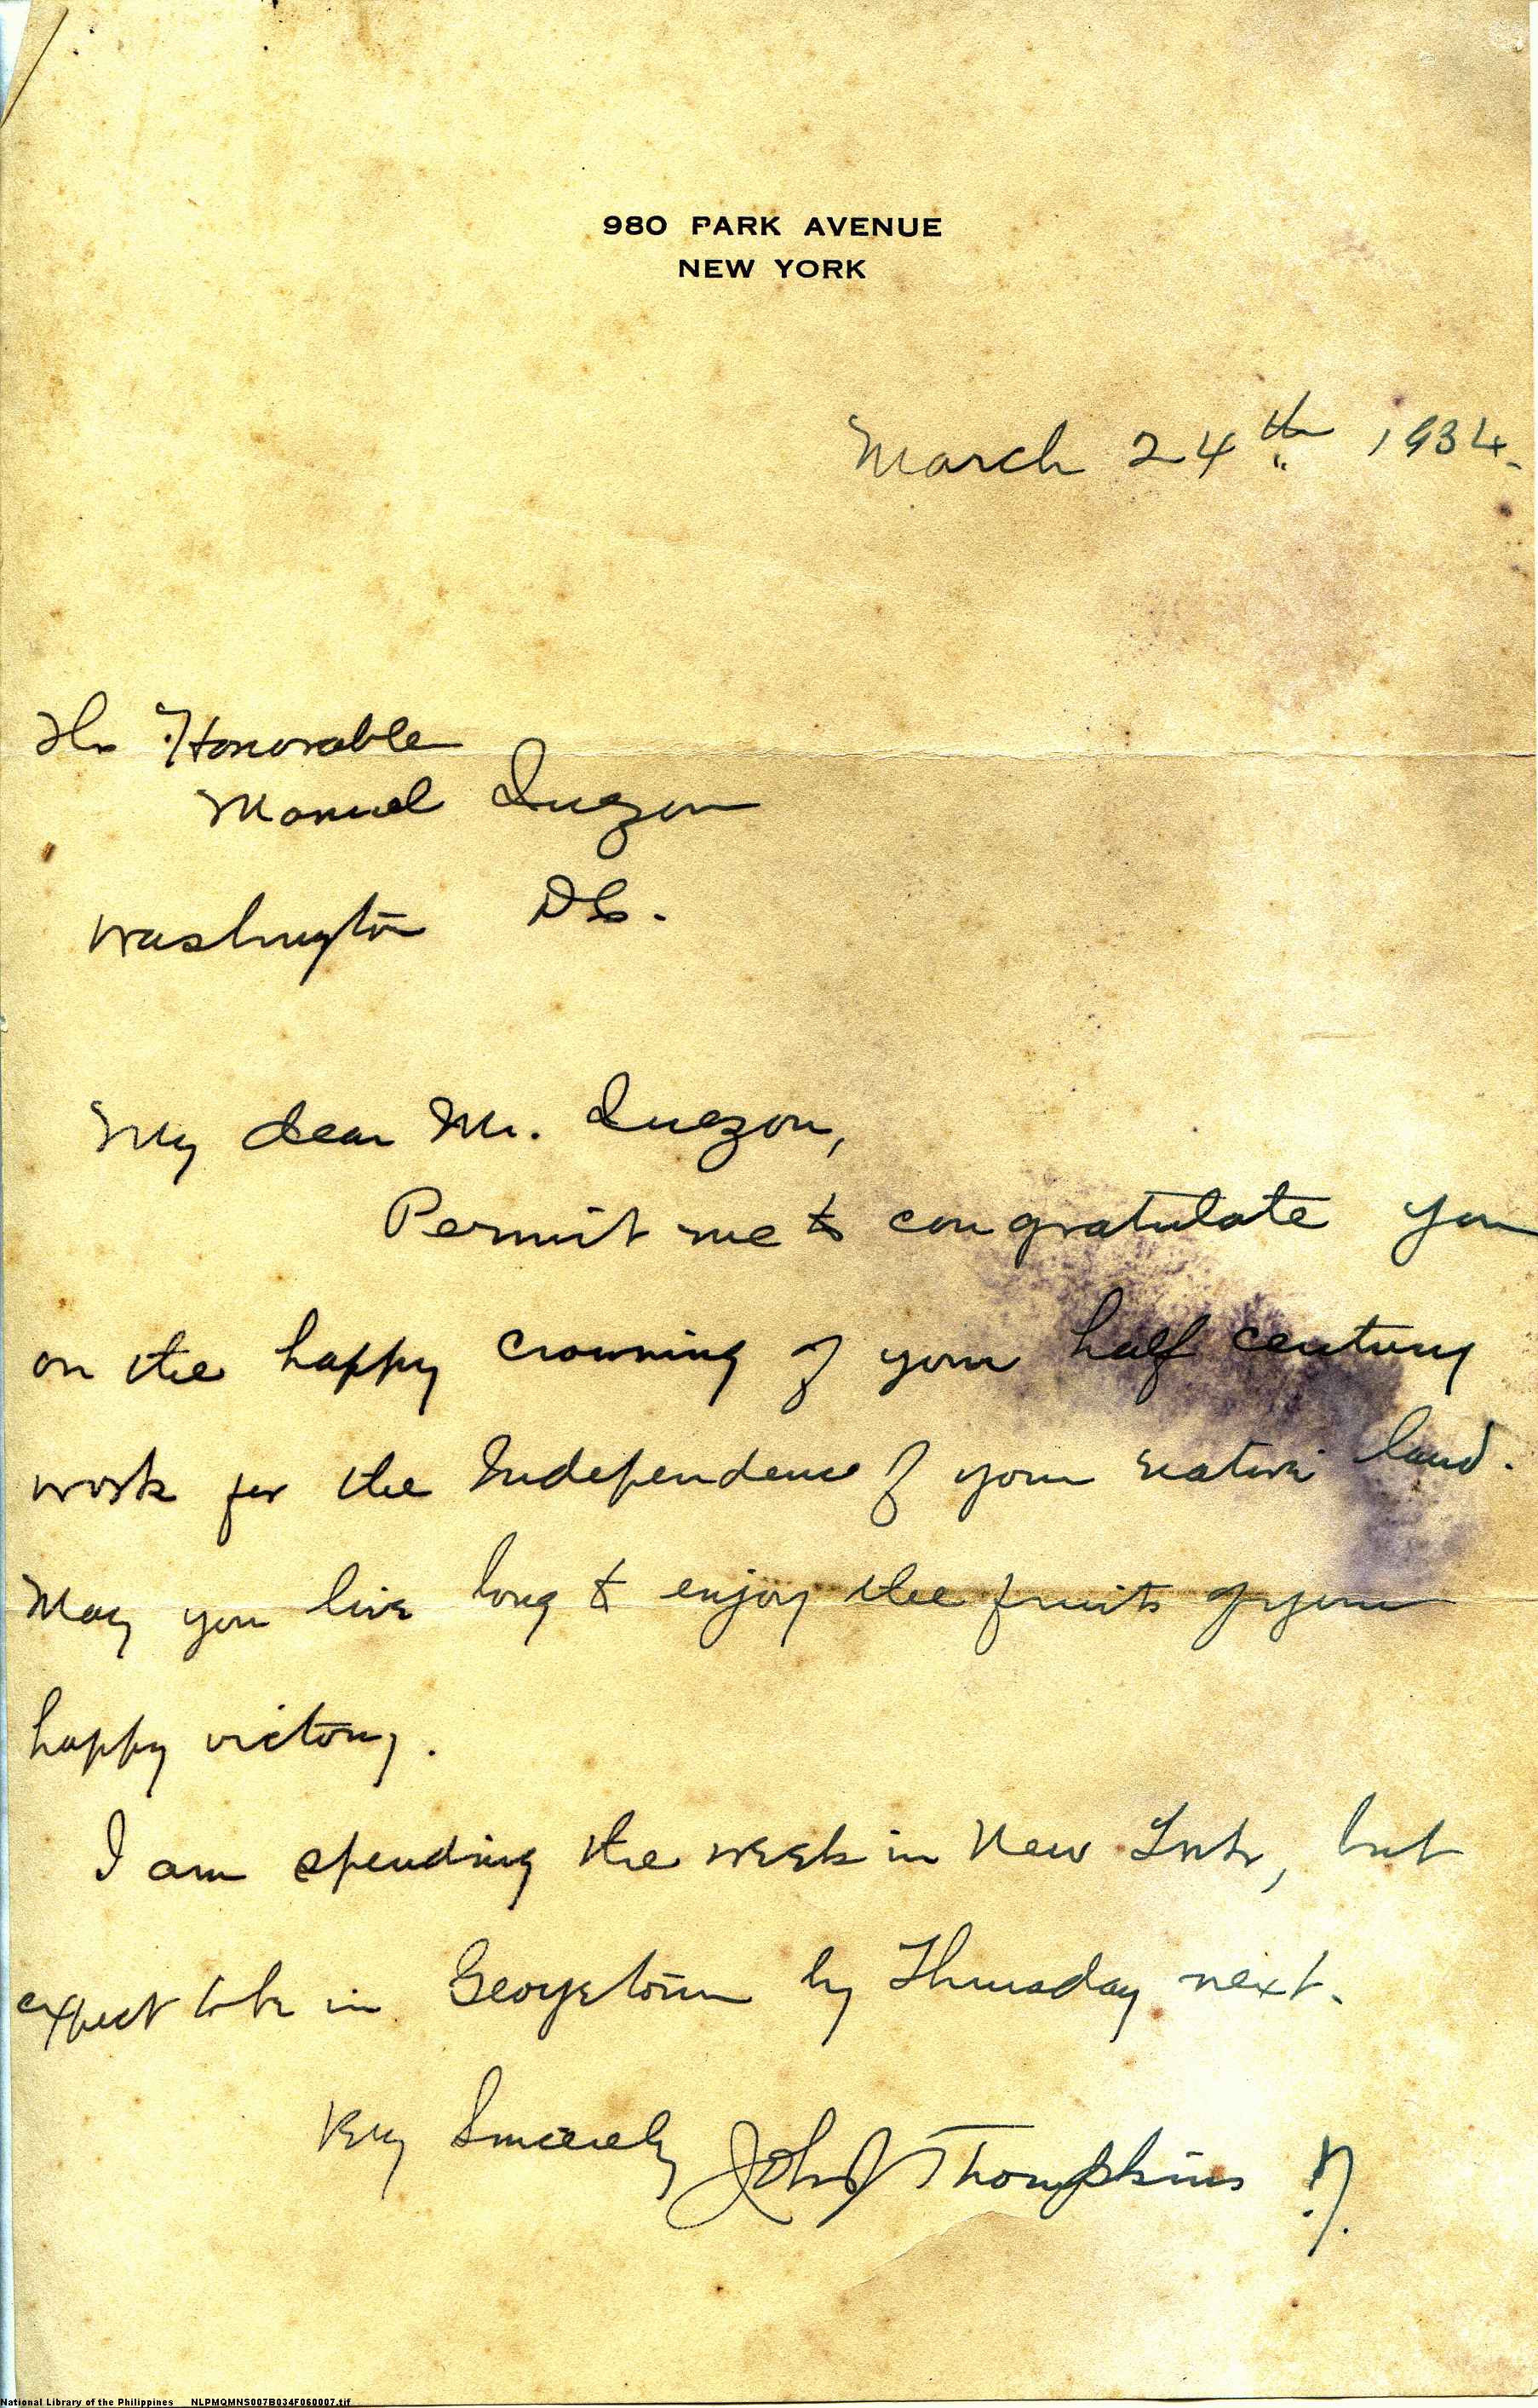 980 PARK AVENUE
NEW YORK
March 24th 1934.
The Honorable
Manuel Quezon
Washington DC.
My dear Mr. Quezon,
Permit me to congratulate you
on the happy crowning of your half century
work for the Independence of your native land.
May you live long & enjoy the fruits of your
happy victory.
I am spending the week in New York, but
expect to be in Georgetown by Thursday next.
Very Sincerely John J Thompkins S.J.
National Library of the Philippines NLPMQMNS007B034F060007.tif